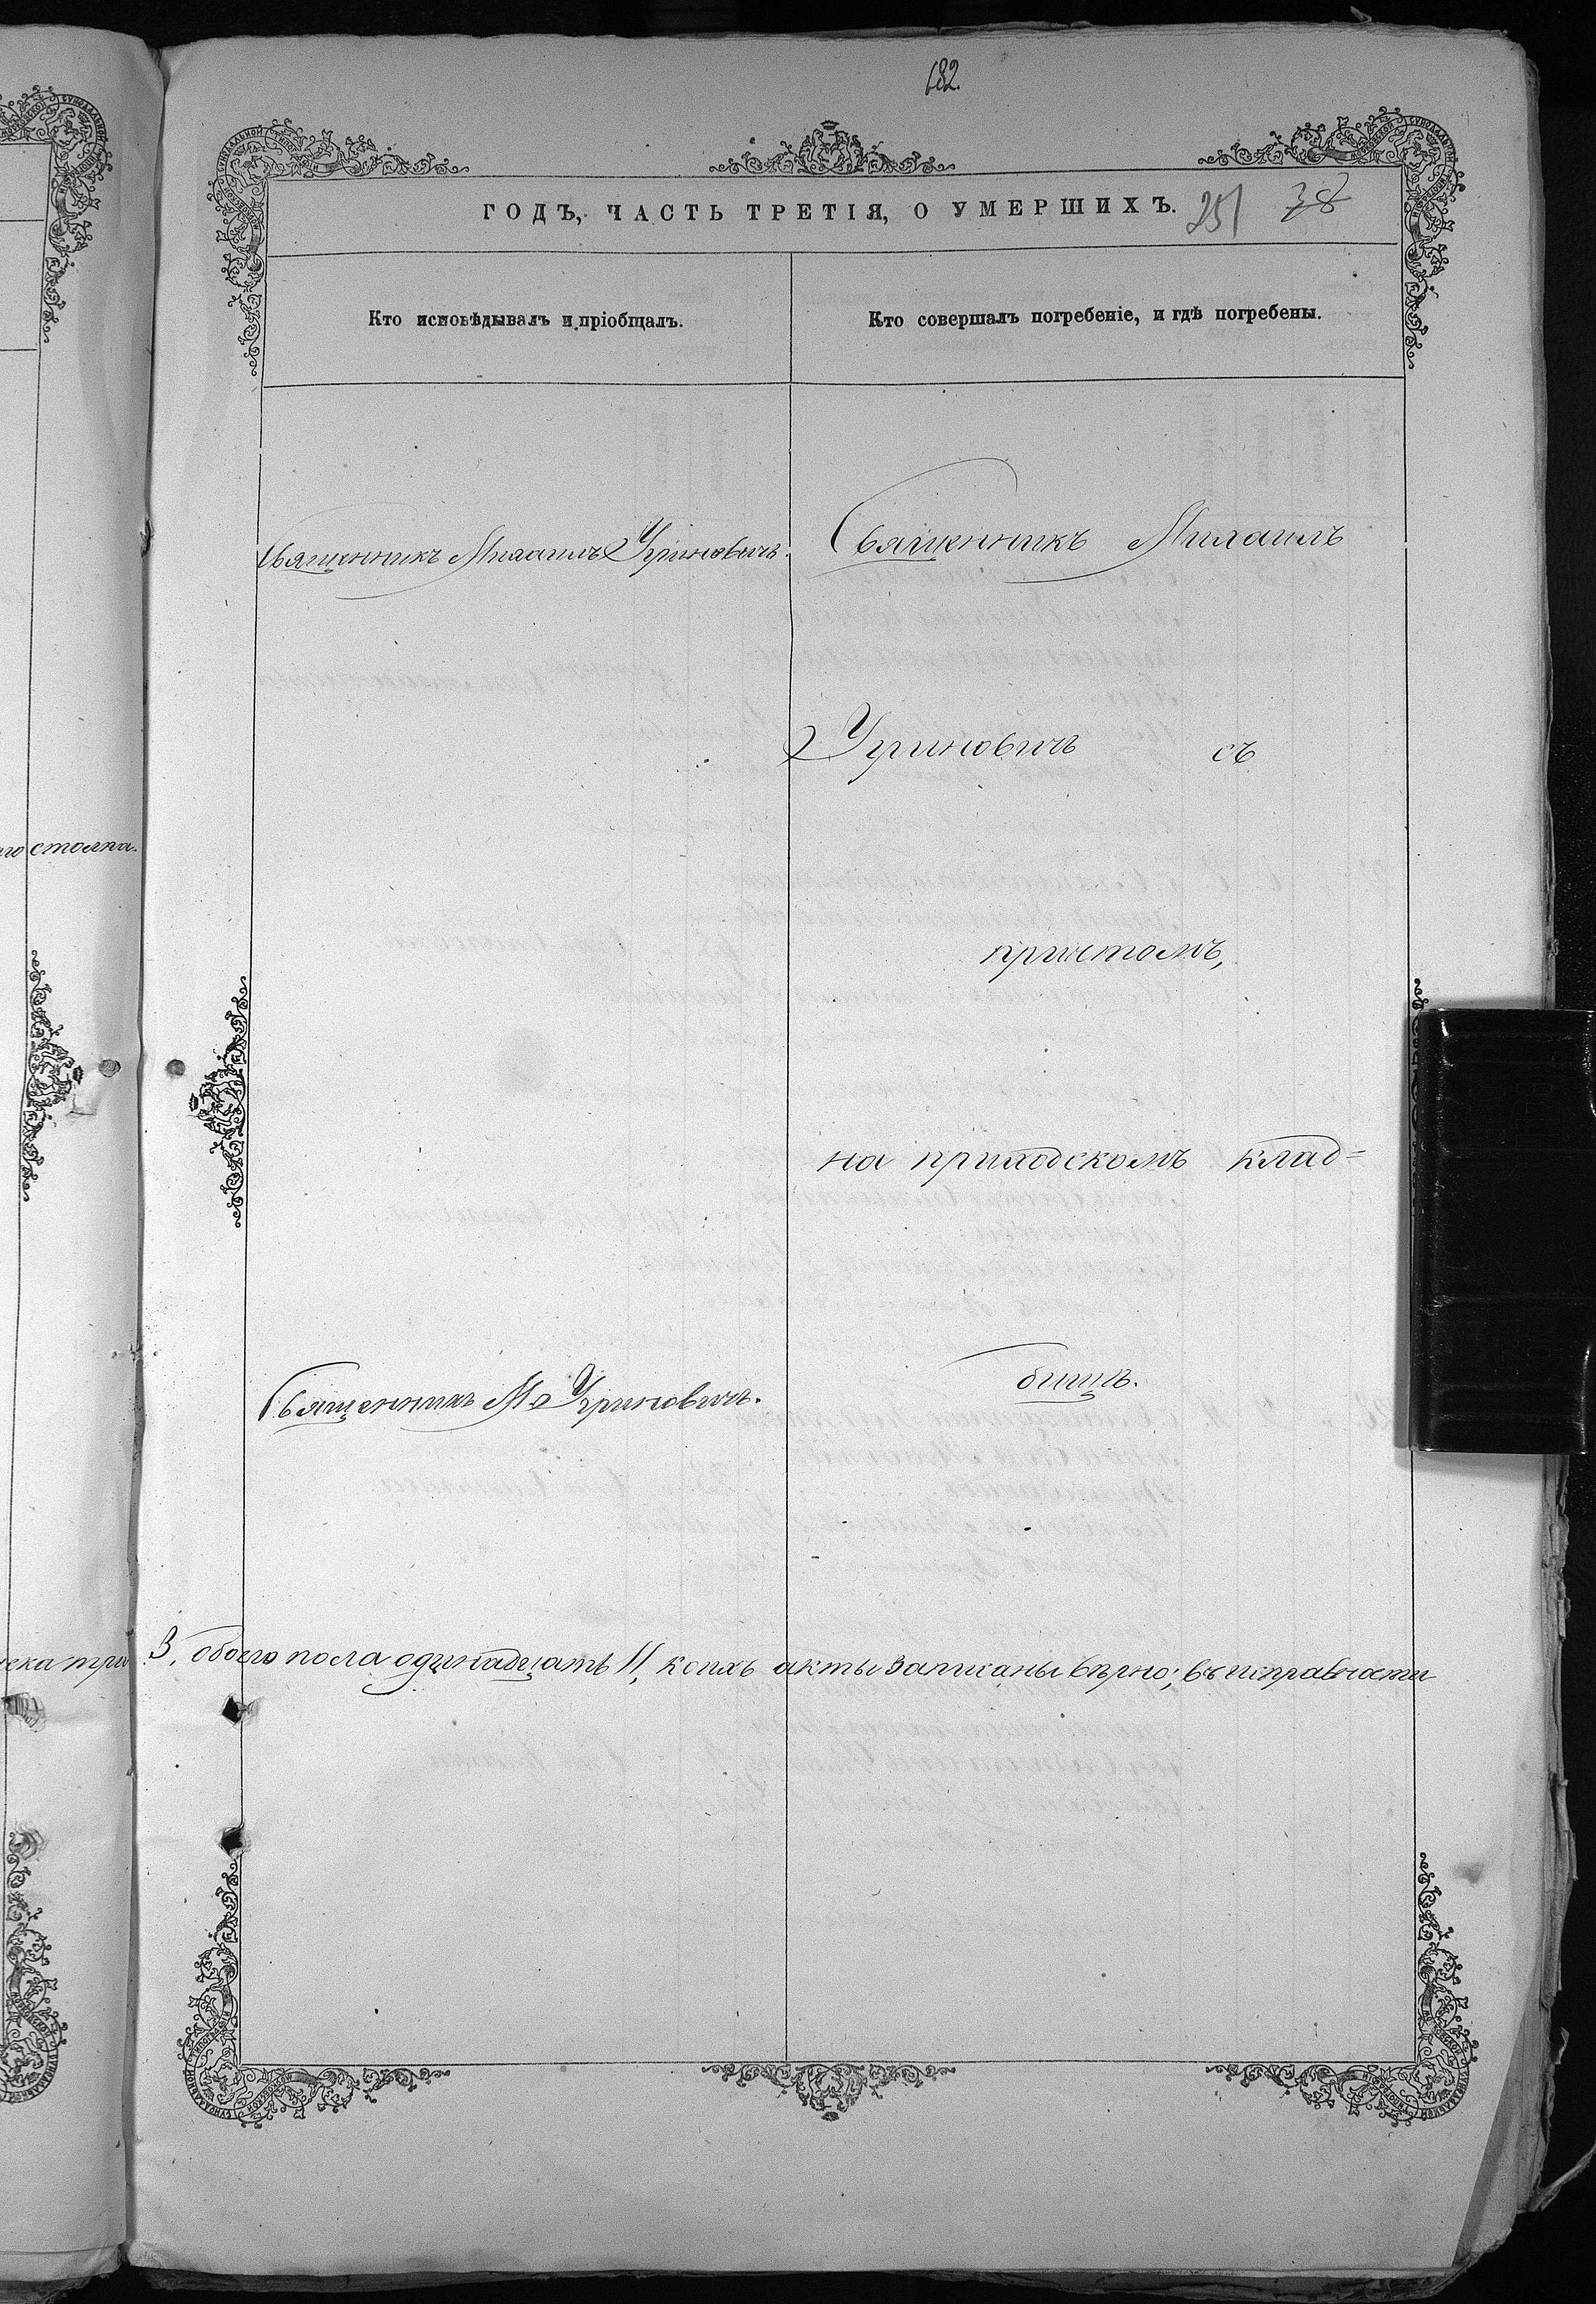 182.
ГОДЪ, ЧАСТЬ ТРЕТІЯ, О УМЕРШИХЪ. 251 38
Кто исповѣдывалъ и пріобщалъ.
Кто совершалъ погребеніе, и гдѣ погребены.
Священникъ Михаилъ Угриновичъ.
Священникъ Михаилъ
Угриновичъ съ
причтомъ,
на приходскомъ клад=
Священникъ М Угриновичъ.
бищѣ.
столпа.
века три 3, обоего пола одинадцать 11, коихъ акты записаны вѣрно; въ исправности